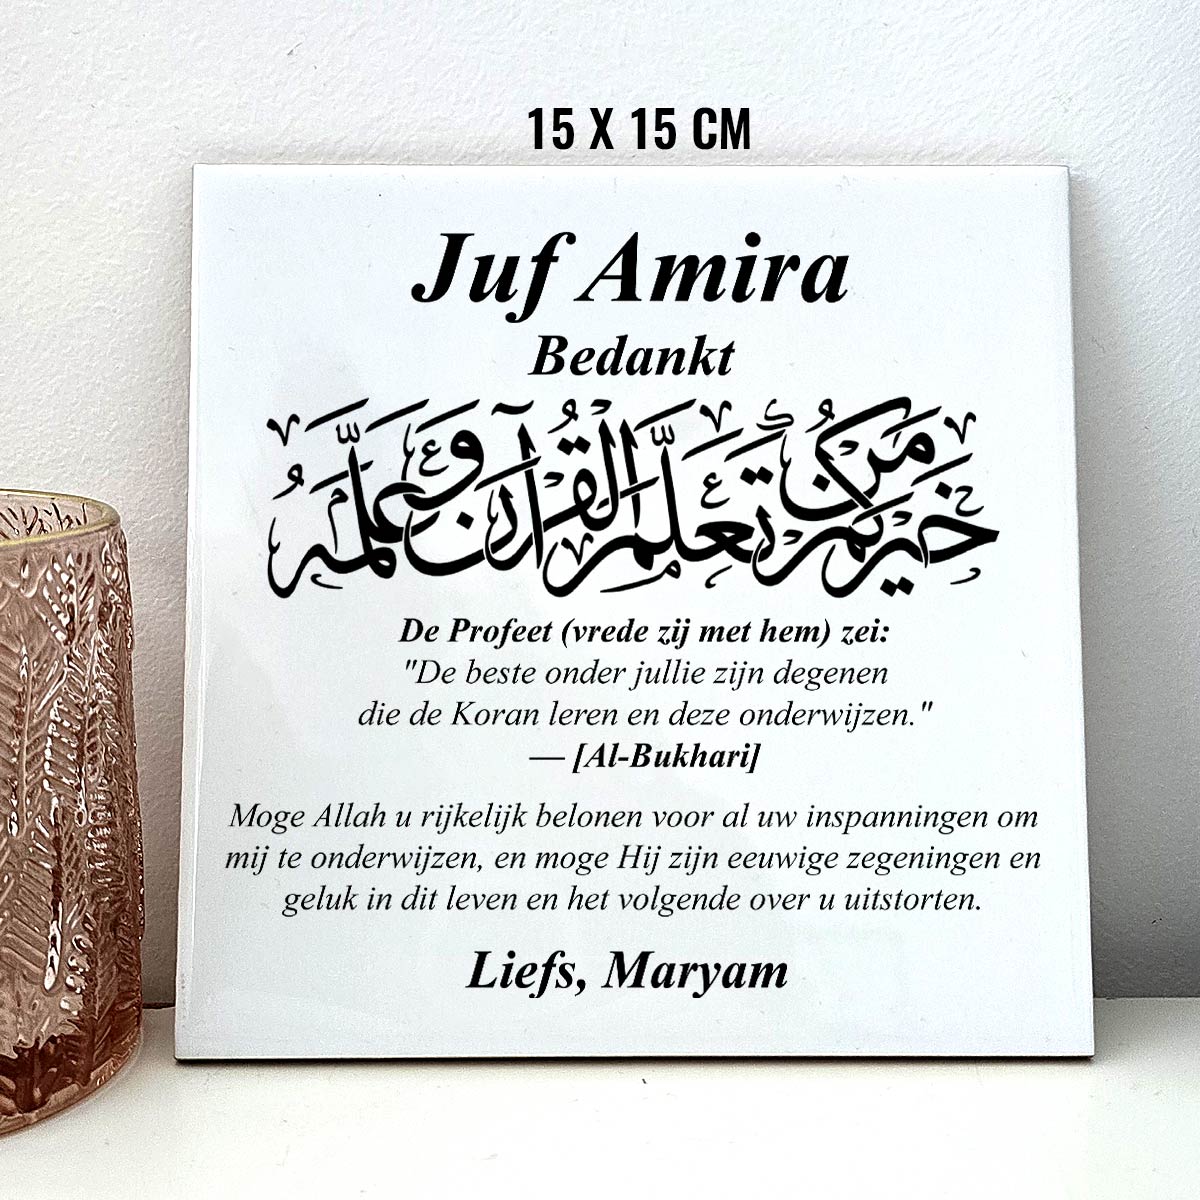 15 X 15 CM
Juf Amira
Bedankt
خَيْرُكُمْ مَنْ تَعَلَّمَ الْقُرْآنَ وَعَلَّمَهُ
De Profeet (vrede zij met hem) zei:
"De beste onder jullie zijn degenen
die de Koran leren en deze onderwijzen."
— [Al-Bukhari]
Moge Allah u rijkelijk belonen voor al uw inspanningen om
mij te onderwijzen, en moge Hij zijn eeuwige zegeningen en
geluk in dit leven en het volgende over u uitstorten.
Liefs, Maryam